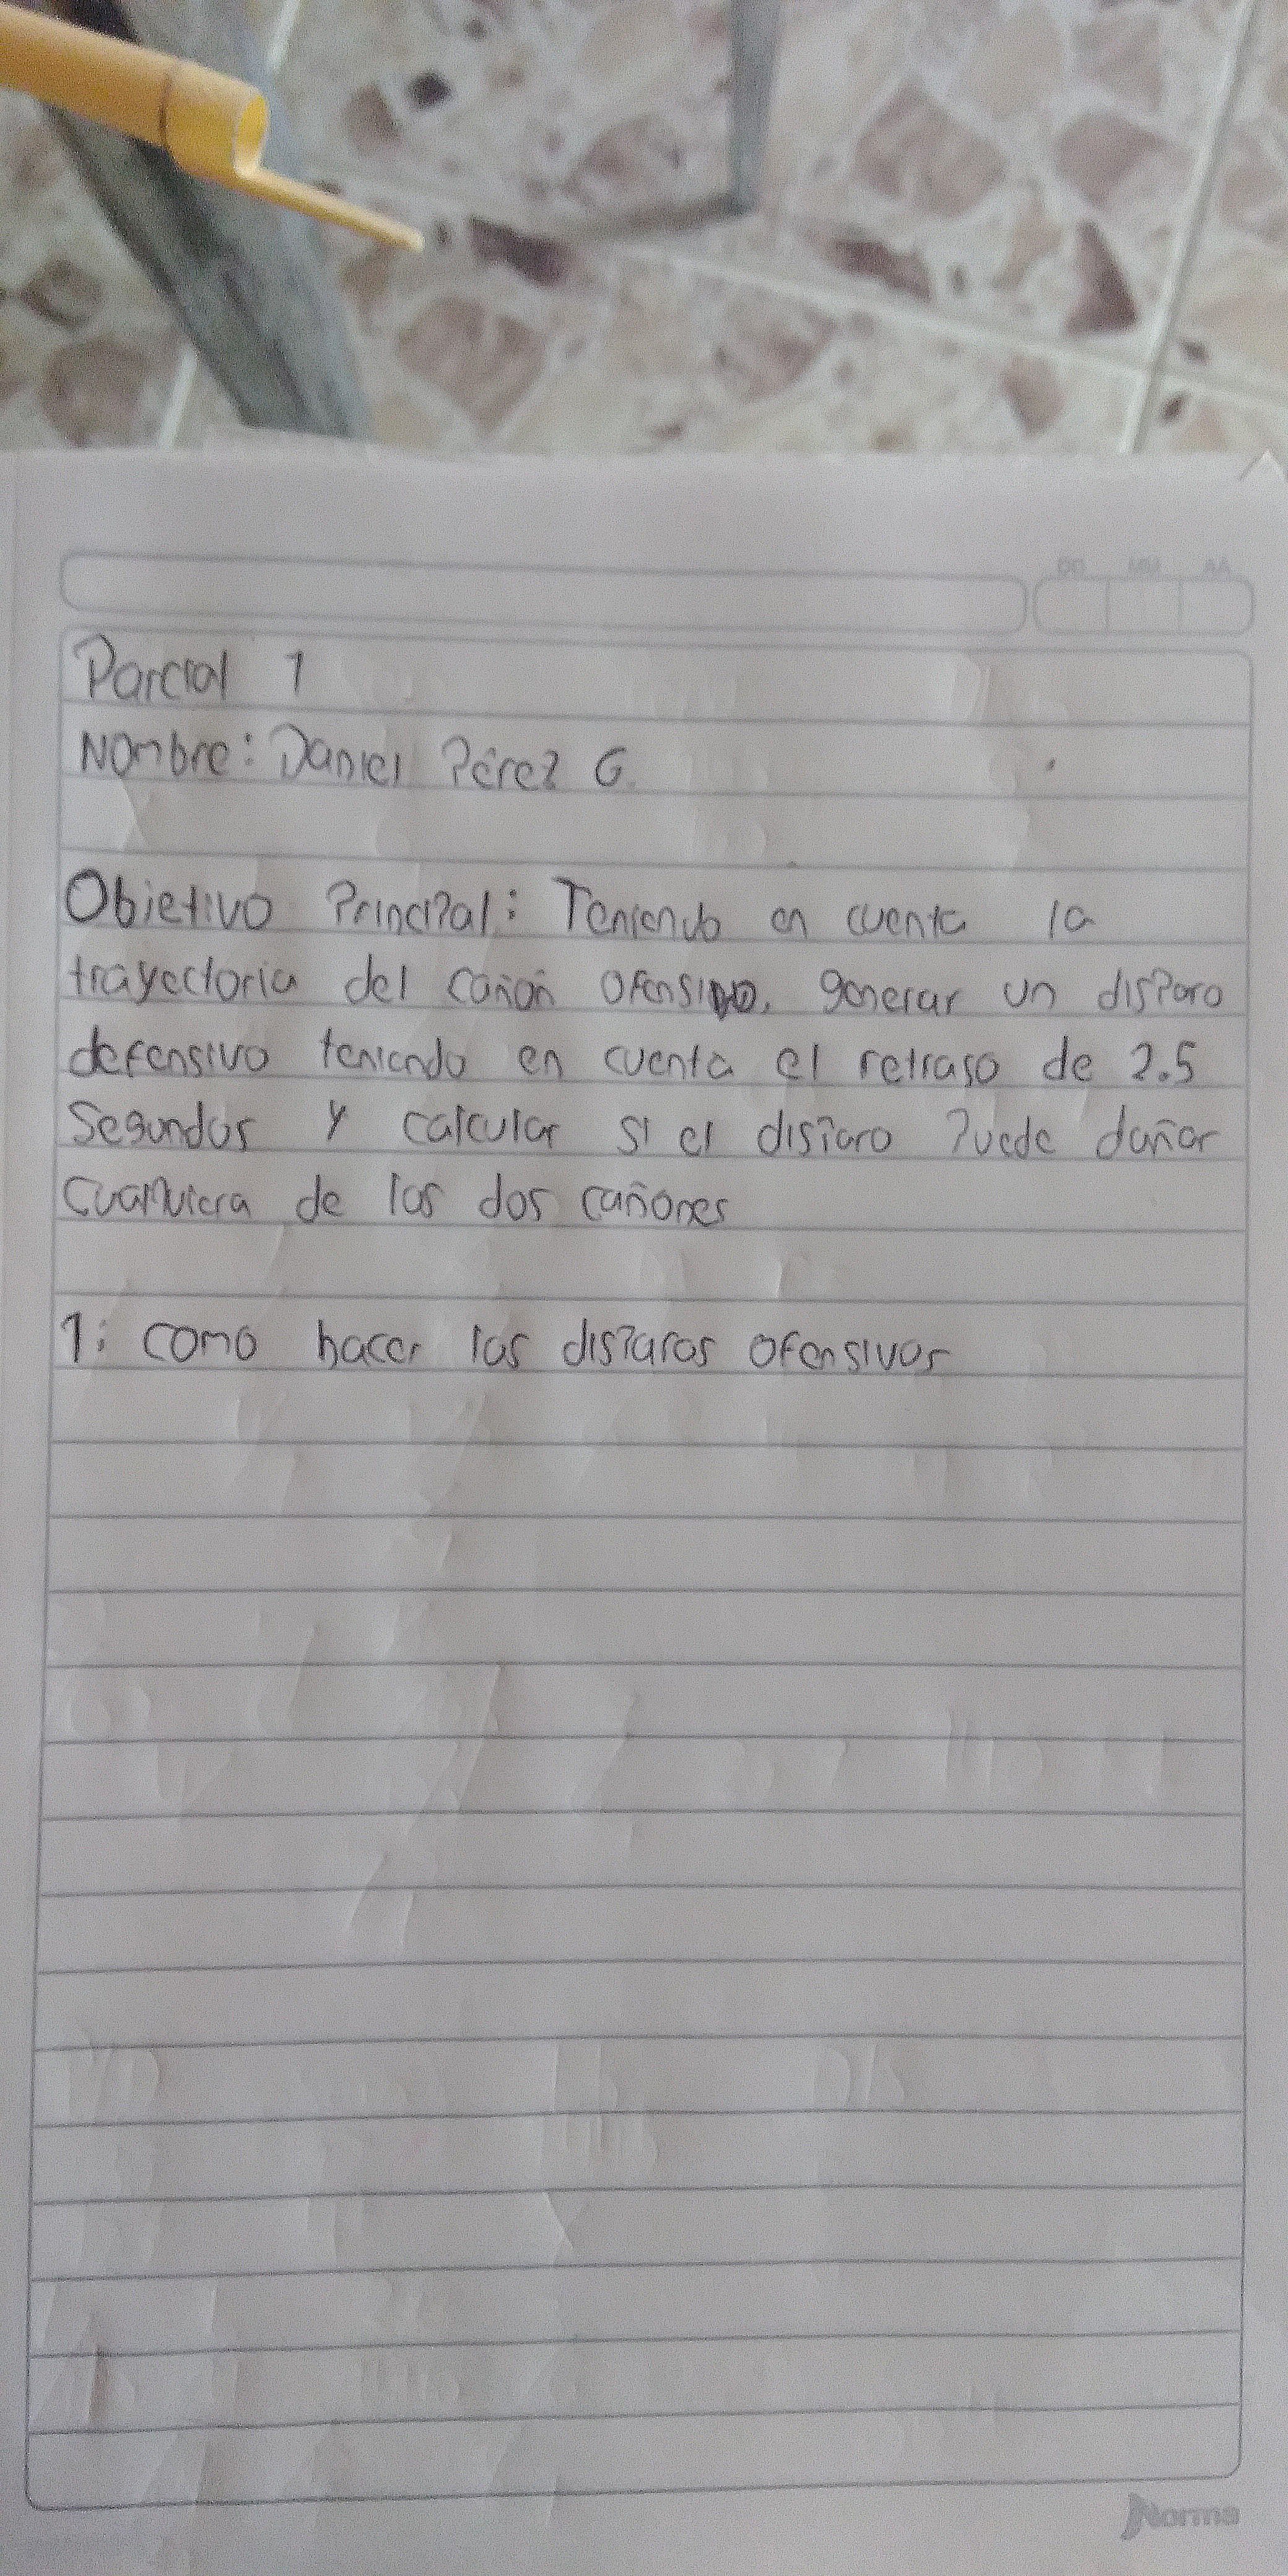 DD MM AA
Parcial 1
Nombre: Daniel Pérez G.
Objetivo Principal: Teniendo en cuenta la
trayectoria del cañón ofensivo, generar un disparo
defensivo teniendo en cuenta el retraso de 2.5
Segundos y calcular si el disparo Puede dañar
cualquiera de los dos cañones
1: como hacer los disparos ofensivos
Norma